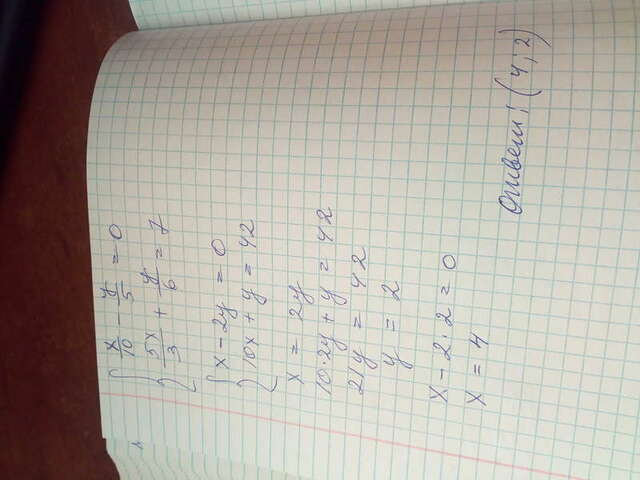 x/10 - y/5 = 0
5x/3 + y/6 = 7
x - 2y = 0
10x + y = 42
x = 2y
10·2y + y = 42
21y = 42
y = 2
x - 2·2 = 0
x = 4
Ответ: (4; 2)